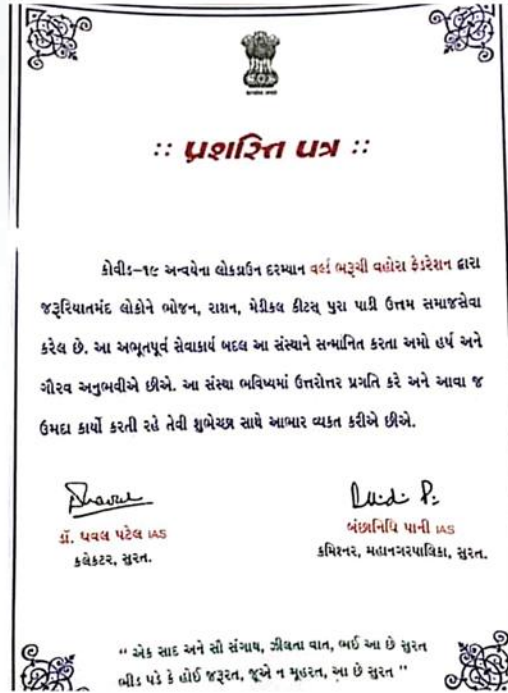 :: પ્રશસ્તિ પત્ર ::
કોવીડ-૧૯ અન્વયેના લોકડાઉન દરમ્યાન વર્લ્ડ ભરૂચી વહોરા ફેડરેશન દ્વારા
જરૂરિયાતમંદ લોકોને ભોજન, રાશન, મેડીકલ કીટસ્ પુરા પાડી ઉત્તમ સમાજસેવા
કરેલ છે. આ અભૂતપૂર્વ સેવાકાર્ય બદલ આ સંસ્થાને સન્માનિત કરતા અમો હર્ષ અને
ગૌરવ અનુભવીએ છીએ. આ સંસ્થા ભવિષ્યમાં ઉત્તરોત્તર પ્રગતિ કરે અને આવા જ
ઉમદા કાર્યો કરતી રહે તેવી શુભેચ્છા સાથે આભાર વ્યકત કરીએ છીએ.
ડૉ. ધવલ પટેલ IAS
કલેકટર, સુરત.
બંછાનિધિ પાની IAS
કમિશ્નર, મહાનગરપાલિકા, સુરત.
“ એક સાદ અને સૌ સંગાથ, ઝીલતા વાત, ભઈ આ છે સુરત
ભીડ પડે કે હોઈ જરૂરત, જૂએ ન મુહરત, આ છે સુરત ”